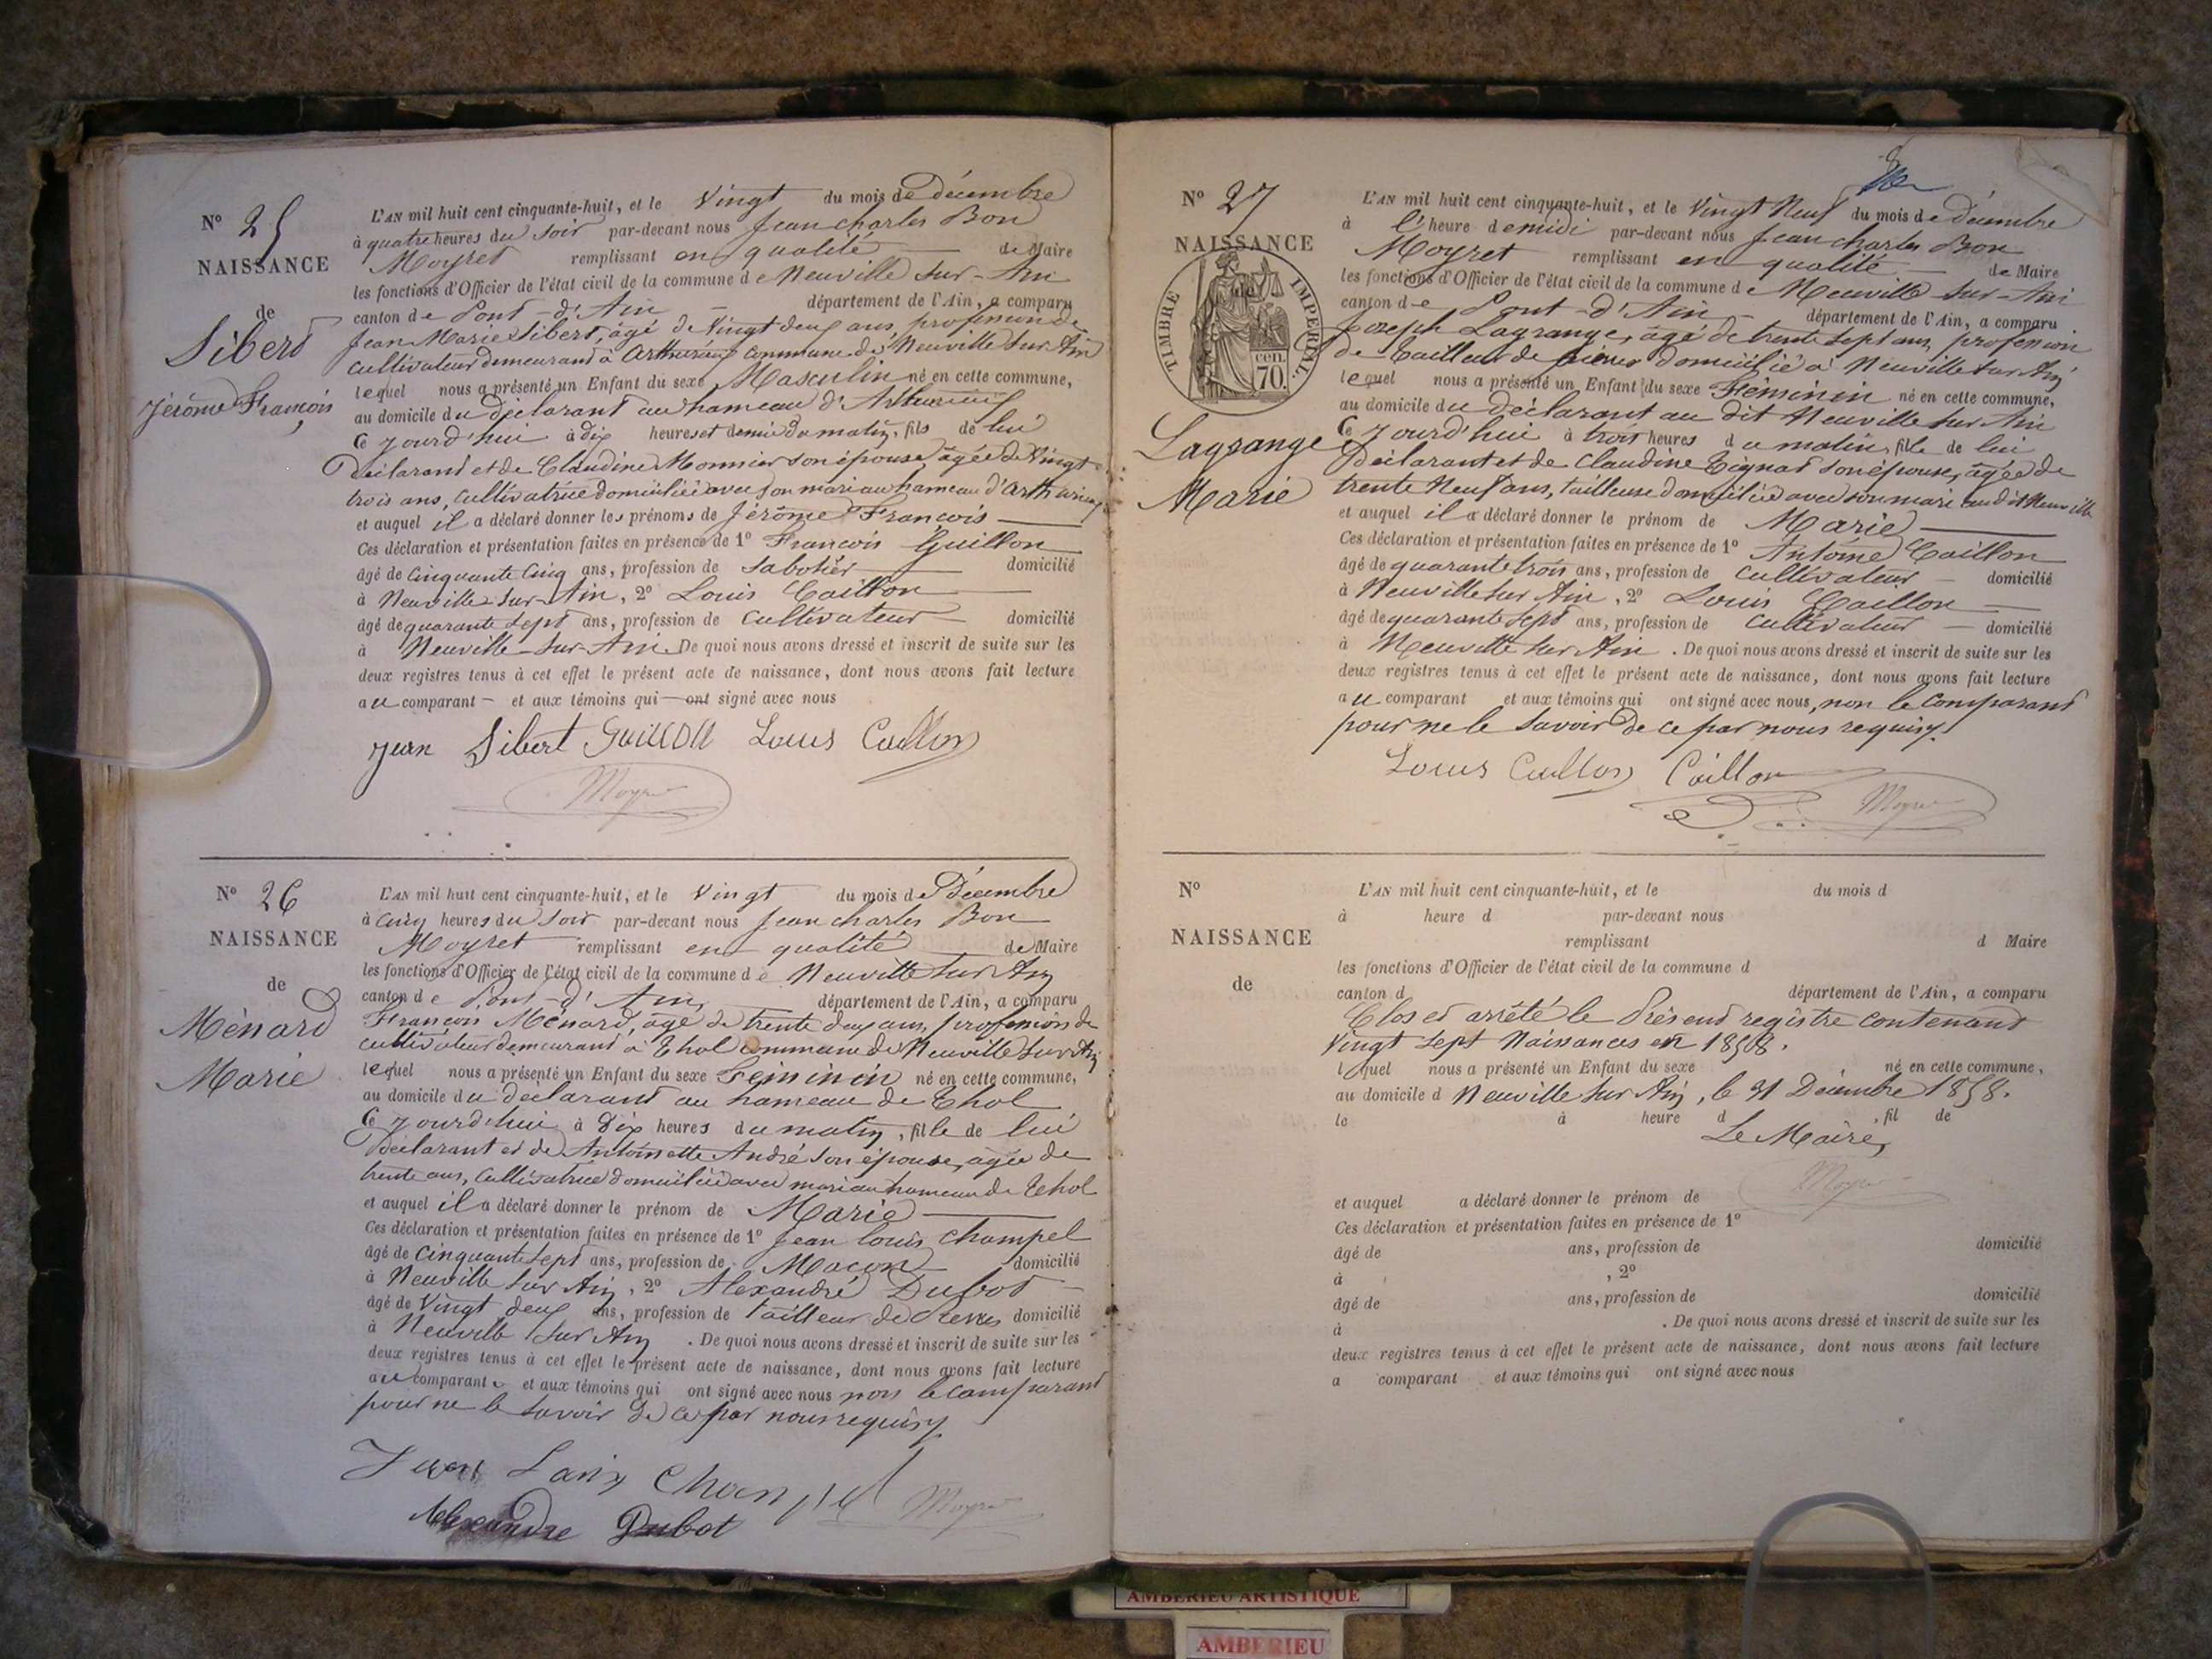 N° 25
NAISSANCE
de
Sibert
Jérôme François
L'AN mil huit cent cinquante-huit, et le Vingt du mois de décembre
à quatre heures du soir par-devant nous Jean charles Bon
Moyret remplissant en qualité de Maire
les fonctions d'Officier de l'état civil de la commune de Neuville sur-Ain
canton de Pont-d'Ain département de l'Ain, a comparu
Jean Marie Sibert, âgé de Vingt deux ans, profession de
cultivateur demeurant à commune de Neuville sur Ain
lequel nous a présenté un Enfant du sexe Masculin né en cette commune,
au domicile du déclarant au hameau d'
Ce jourd'hui à dix heures et demie du matin, fils de lui
Déclarant et de Claudine Monnier son épouse, âgée de Vingt
trois ans, cultivatrice domiciliée avec son mari au hameau d'
et auquel il a déclaré donner les prénoms de Jérôme François
Ces déclaration et présentation faites en présence de 1° François Guillon
âgé de cinquante cinq ans, profession de Sabotier domicilié
à Neuville-sur-Ain, 2° Louis Caillon
âgé de quarante sept ans, profession de cultivateur domicilié
à Neuville-sur-Ain. De quoi nous avons dressé et inscrit de suite sur les
deux registres tenus à cet effet le présent acte de naissance, dont nous avons fait lecture
au comparant et aux témoins qui ont signé avec nous
jean Sibert Guillon Louis Caillon
Moyret
N° 26
NAISSANCE
de
Ménard
Marie
L'AN mil huit cent cinquante-huit, et le Vingt du mois de Décembre
à cinq heures du soir par-devant nous Jean charles Bon
Moyret remplissant en qualité de Maire
les fonctions d'Officier de l'état civil de la commune de Neuville sur Ain
canton de Pont-d'Ain département de l'Ain, a comparu
François Ménard, âgé de trente deux ans, profession de
cultivateur demeurant à Thol commune de Neuville sur Ain
lequel nous a présenté un Enfant du sexe Féminin né en cette commune,
au domicile du déclarant au hameau de Thol
Ce jourd'hui à Dix heures du matin, fille de lui
Déclarant et de Antoinette André son épouse, âgée de
trente ans, cultivatrice domiciliée avec mari au hameau de Thol
et auquel il a déclaré donner le prénom de Marie
Ces déclaration et présentation faites en présence de 1° Jean louis Champel
âgé de cinquante sept ans, profession de Maçon domicilié
à Neuville sur Ain, 2° Alexandre Dubot
âgé de Vingt deux ans, profession de tailleur de Pierres domicilié
à Neuville sur Ain. De quoi nous avons dressé et inscrit de suite sur les
deux registres tenus à cet effet le présent acte de naissance, dont nous avons fait lecture
au comparant et aux témoins qui ont signé avec nous non le comparant
pour ne le savoir de ce par nous requis
Jean Louis Champel Moyret
Alexandre Dubot
N° 27
NAISSANCE
de
TIMBRE IMPERIAL
cen.
70.
Lagrange
Marie
L'AN mil huit cent cinquante-huit, et le Vingt Neuf du mois de décembre
à l'heure de midi par-devant nous Jean charles Bon
Moyret remplissant en qualité de Maire
les fonctions d'Officier de l'état civil de la commune de Neuville sur-Ain
canton de Pont-d'Ain département de l'Ain, a comparu
Joseph Lagrange, âgé de trente sept ans, profession
de tailleur de pierres domicilié à Neuville sur Ain
lequel nous a présenté un Enfant du sexe Féminin né en cette commune,
au domicile du déclarant au dit Neuville sur Ain
Ce jourd'hui à trois heures du matin, fille de lui
Déclarant et de Claudine Tignat son épouse, âgée de
trente Neuf ans, tailleuse domiciliée avec son mari audit Neuville
et auquel il a déclaré donner le prénom de Marie
Ces déclaration et présentation faites en présence de 1° Antoine Caillon
âgé de quarante trois ans, profession de cultivateur domicilié
à Neuville sur Ain, 2° Louis Caillon
âgé de quarante sept ans, profession de cultivateur domicilié
à Neuville sur Ain. De quoi nous avons dressé et inscrit de suite sur les
deux registres tenus à cet effet le présent acte de naissance, dont nous avons fait lecture
au comparant et aux témoins qui ont signé avec nous, non le comparant
pour ne le savoir de ce par nous requis.
Louis Caillon Caillon
Moyret
N°
NAISSANCE
de
L'AN mil huit cent cinquante-huit, et le du mois d
à heure d par-devant nous
remplissant d Maire
les fonctions d'Officier de l'état civil de la commune d
canton d département de l'Ain, a comparu
Clos et arrêté le Présent registre contenant
Vingt sept Naissances en 1858.
l quel nous a présenté un Enfant du sexe né en cette commune,
au domicile d Neuville sur Ain, le 31 Décembre 1858.
le à heure d , fil de
Le Maire,
Moyret
et auquel a déclaré donner le prénom de
Ces déclaration et présentation faites en présence de 1°
âgé de ans, profession de domicilié
à , 2°
âgé de ans, profession de domicilié
à . De quoi nous avons dressé et inscrit de suite sur les
deux registres tenus à cet effet le présent acte de naissance, dont nous avons fait lecture
a comparant et aux témoins qui ont signé avec nous
AMBERIEU ARTISTIQUE
AMBERIEU